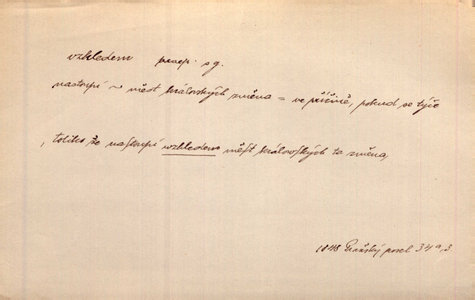 vzhledem praep. s g.
nastoupí ~ měst královských změna = v příčině, pokud se týče
, toliko že nastoupí vzhledem měst královských ta změna,
1848 Pražský posel 34a,3.